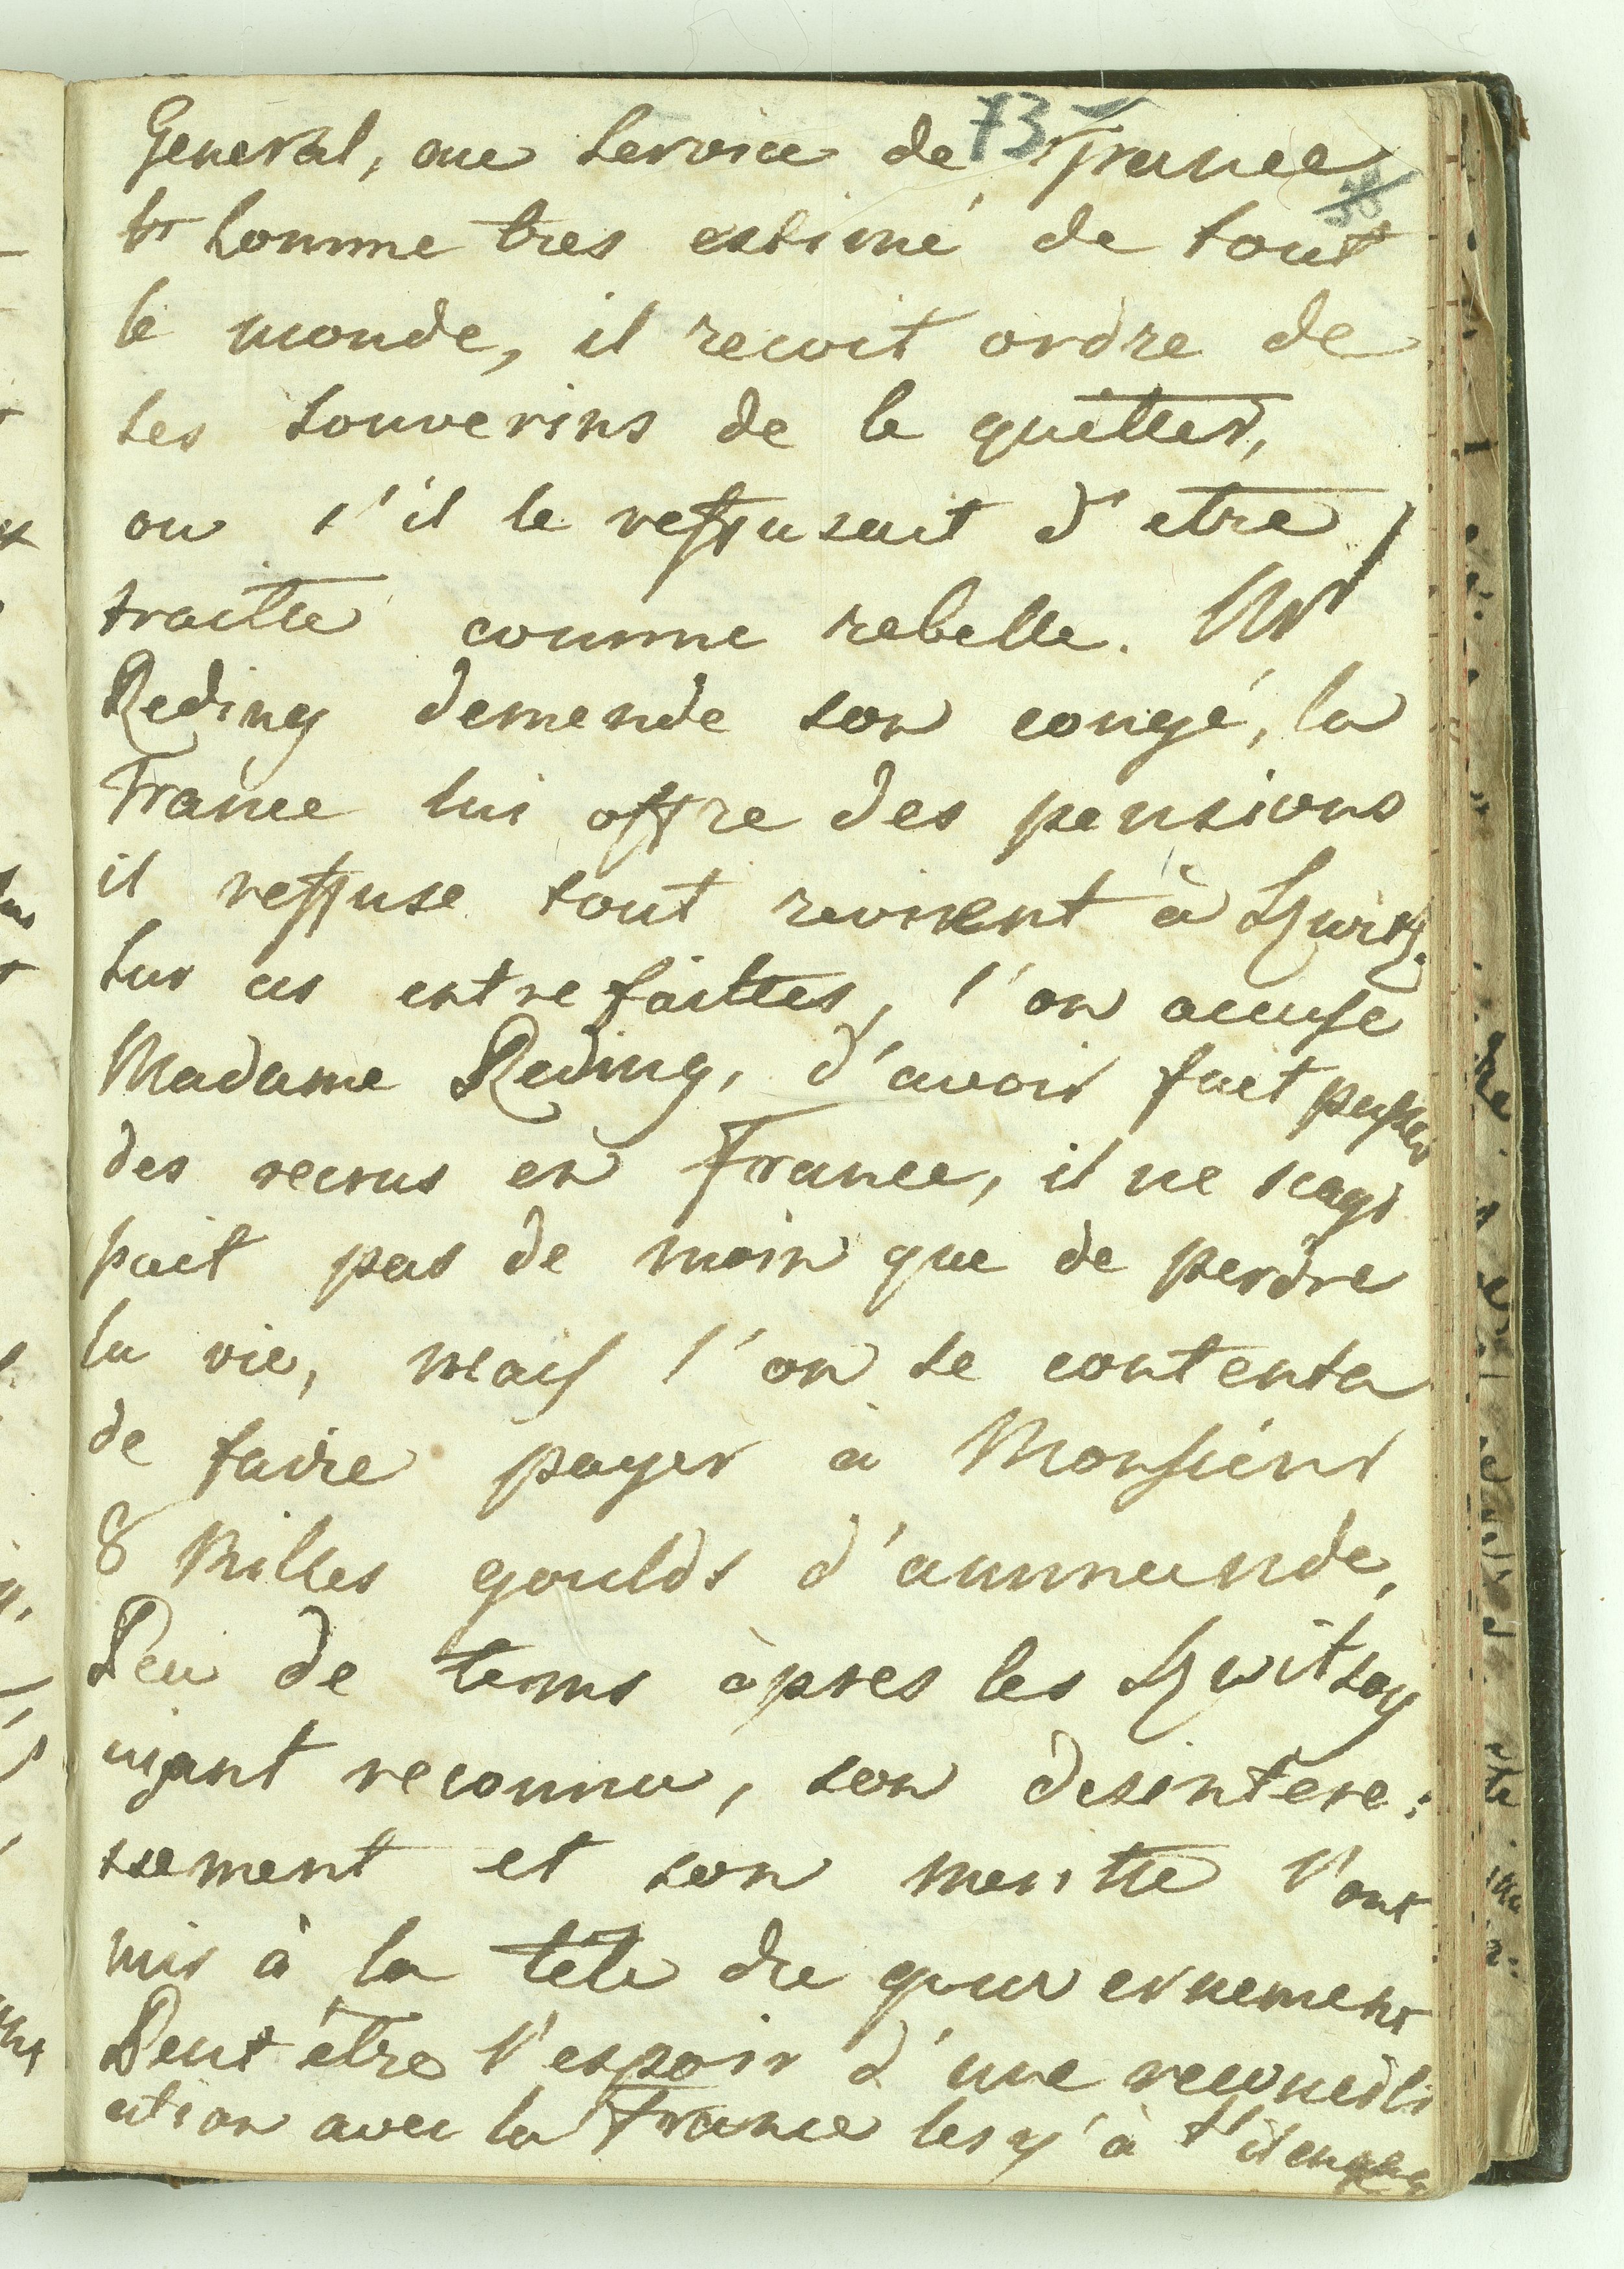 73
General, au service de France
tr homme tres estimé de tout
le monde, il recoit ordre de
ses souverins de le quitter,
ou s'il le reffusait d'etre
traitte comme rebelle. Mr
Reding demende son congé, la
France lui offre des pensions
il reffuse tout revient à Schwitz.
sur ces entrefaittes, l'on accuse
Madame Reding, d'avoir fait passer
des recrus en France, il ne s'agi
sait pas de moin que de perdre
la vie, mais l'on se contenta
de faire payer à Monsieur
8 Milles goulds d'ammande,
Peu de tems àpres les Schwitsoy
ayant reconnu, son desintere:
ssement et son meritte l'ont
mis à la tete du gouvernement
Peut être l'espoir d'une reconcili
ation avec la France les y' à t'il